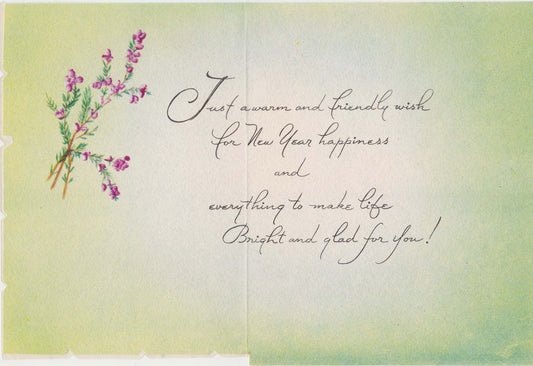 Just a warm and friendly wish
for New Year happiness
and
everything to make life
Bright and glad for you!